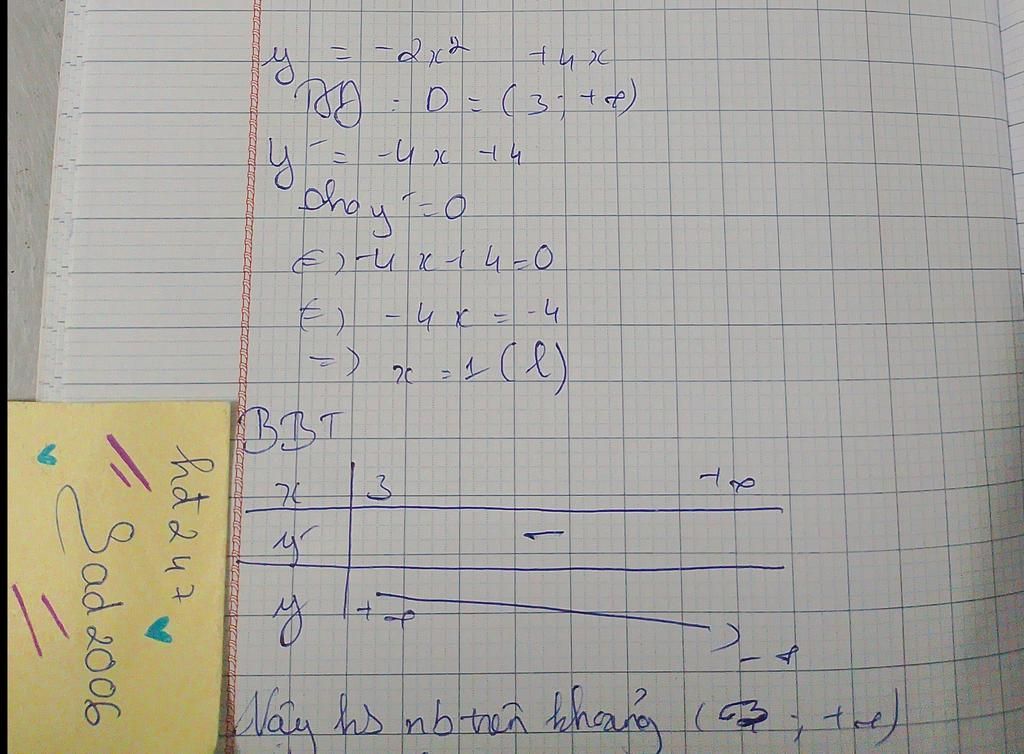 y = -2x² +4x
TXĐ : D = (3; +∞)
y' = -4x +4
Cho y' = 0
⇔ -4x + 4 = 0
⇔ -4x = -4
⇒ x = 1 (l)
BBT
x 3 +∞
y' −
y +∞ -∞
Vậy hs nb trên khoảng (3; +∞)
hđ 247
Sad2006